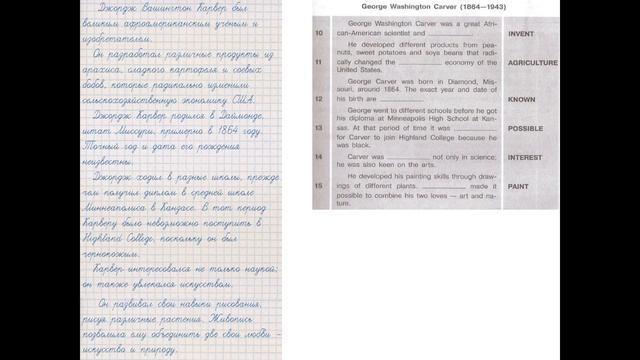 Джордж Вашингтон Карвер был
великим афроамериканским ученым и
изобретателем.
Он разработал различные продукты из
арахиса, сладкого картофеля и соевых
бобов, которые радикально изменили
сельскохозяйственную экономику США.
Джордж Карвер родился в Даймонде,
штат Миссури, примерно в 1864 году.
Точный год и дата его рождения
неизвестны.
Джордж ходил в разные школы, прежде
чем получил диплом в средней школе
Миннеаполиса в Канзасе. В тот период
Карверу было невозможно поступить в
Highland College, поскольку он был
чернокожим.
Карвер интересовался не только наукой;
он также увлекался искусством.
Он развивал свои навыки рисования,
рисуя различные растения. Живопись
позволила ему объединить две свои любви –
искусство и природу.
George Washington Carver (1864—1943)
George Washington Carver was a great Afri-
10 can-American scientist and __________. INVENT
He developed different products from pea-
nuts, sweet potatoes and soya beans that radi-
11 cally changed the __________ economy of the AGRICULTURE
United States.
George Carver was born in Diamond, Mis-
souri, around 1864. The exact year and date of
12 his birth are __________. KNOWN
George went to different schools before he got
his diploma at Minneapolis High School at Kan-
13 sas. At that period of time it was __________ POSSIBLE
for Carver to join Highland College because he
was black.
14 Carver was __________ not only in science; INTEREST
he was also keen on the arts.
He developed his painting skills through draw-
15 ings of different plants. __________ made it PAINT
possible to combine his two loves — art and na-
ture.